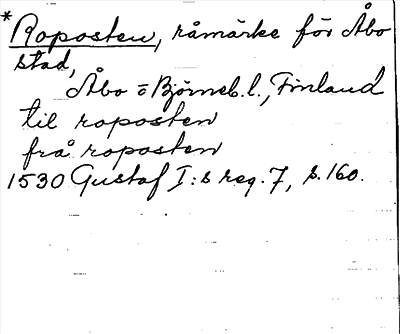 *Roposten, råmärke för Åbo
stad,
Åbo ō Björneb. l., Finland
til roposten
frå roposten
1530 Gustaf I:s reg. 7, s. 160.